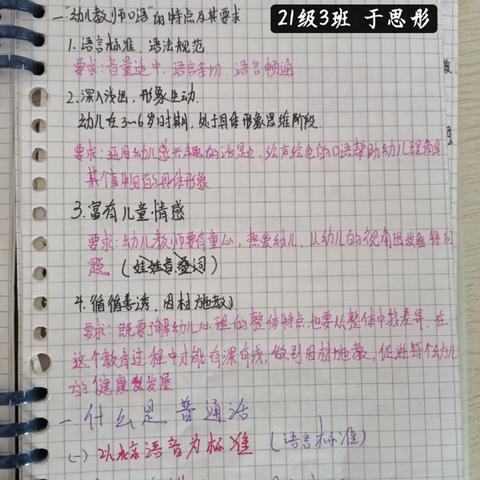 21级3班 于思彤
一."幼儿教师口语"的特点及其要求
1.语言标准、语法规范
要求:音量适中、语言亲切、语言畅通
2.深入浅出,形象生动.
幼儿在3~6岁时期,处于具体形象思维阶段.
要求:运用幼儿感兴趣的话题,绘声绘色的口语帮助幼儿理解
某个事物的具体形象
3.富有儿童情感
要求:幼儿教师要有童心,热爱幼儿.从幼儿的视角出发看待问
题。(娃娃音叠词)
4.循循善诱,因材施教
要求:既要了解幼儿心理的整体特点,也要从整体中找差异.在
这个教育过程中才能有深有浅,做到因材施教,促进每个幼儿
的健康发展
一.什么是普通话
(一)以北京语音为标准 (语言标准)